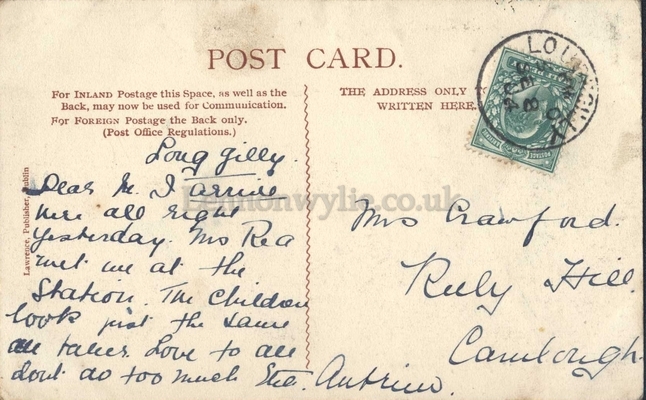 POST CARD.
For INLAND Postage this Space, as well as the
Back, may now be used for Communication.
For FOREIGN Postage the Back only.
(Post Office Regulations.)
THE ADDRESS ONLY
WRITTEN HERE.
Lawrence, Publisher, Dublin
Lennonwylie.co.uk
Long Gilly.
Dear M. I arrive
here all right
yesterday. Mrs Rea
met me at the
Station. The Children
look just the same
all takes Love to all
dont do too much
Mrs Crawford.
Hill.
Camlough
Antrim.